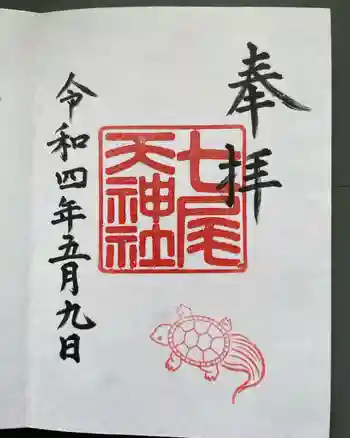 奉拝
七尾
天神社
令和四年五月九日